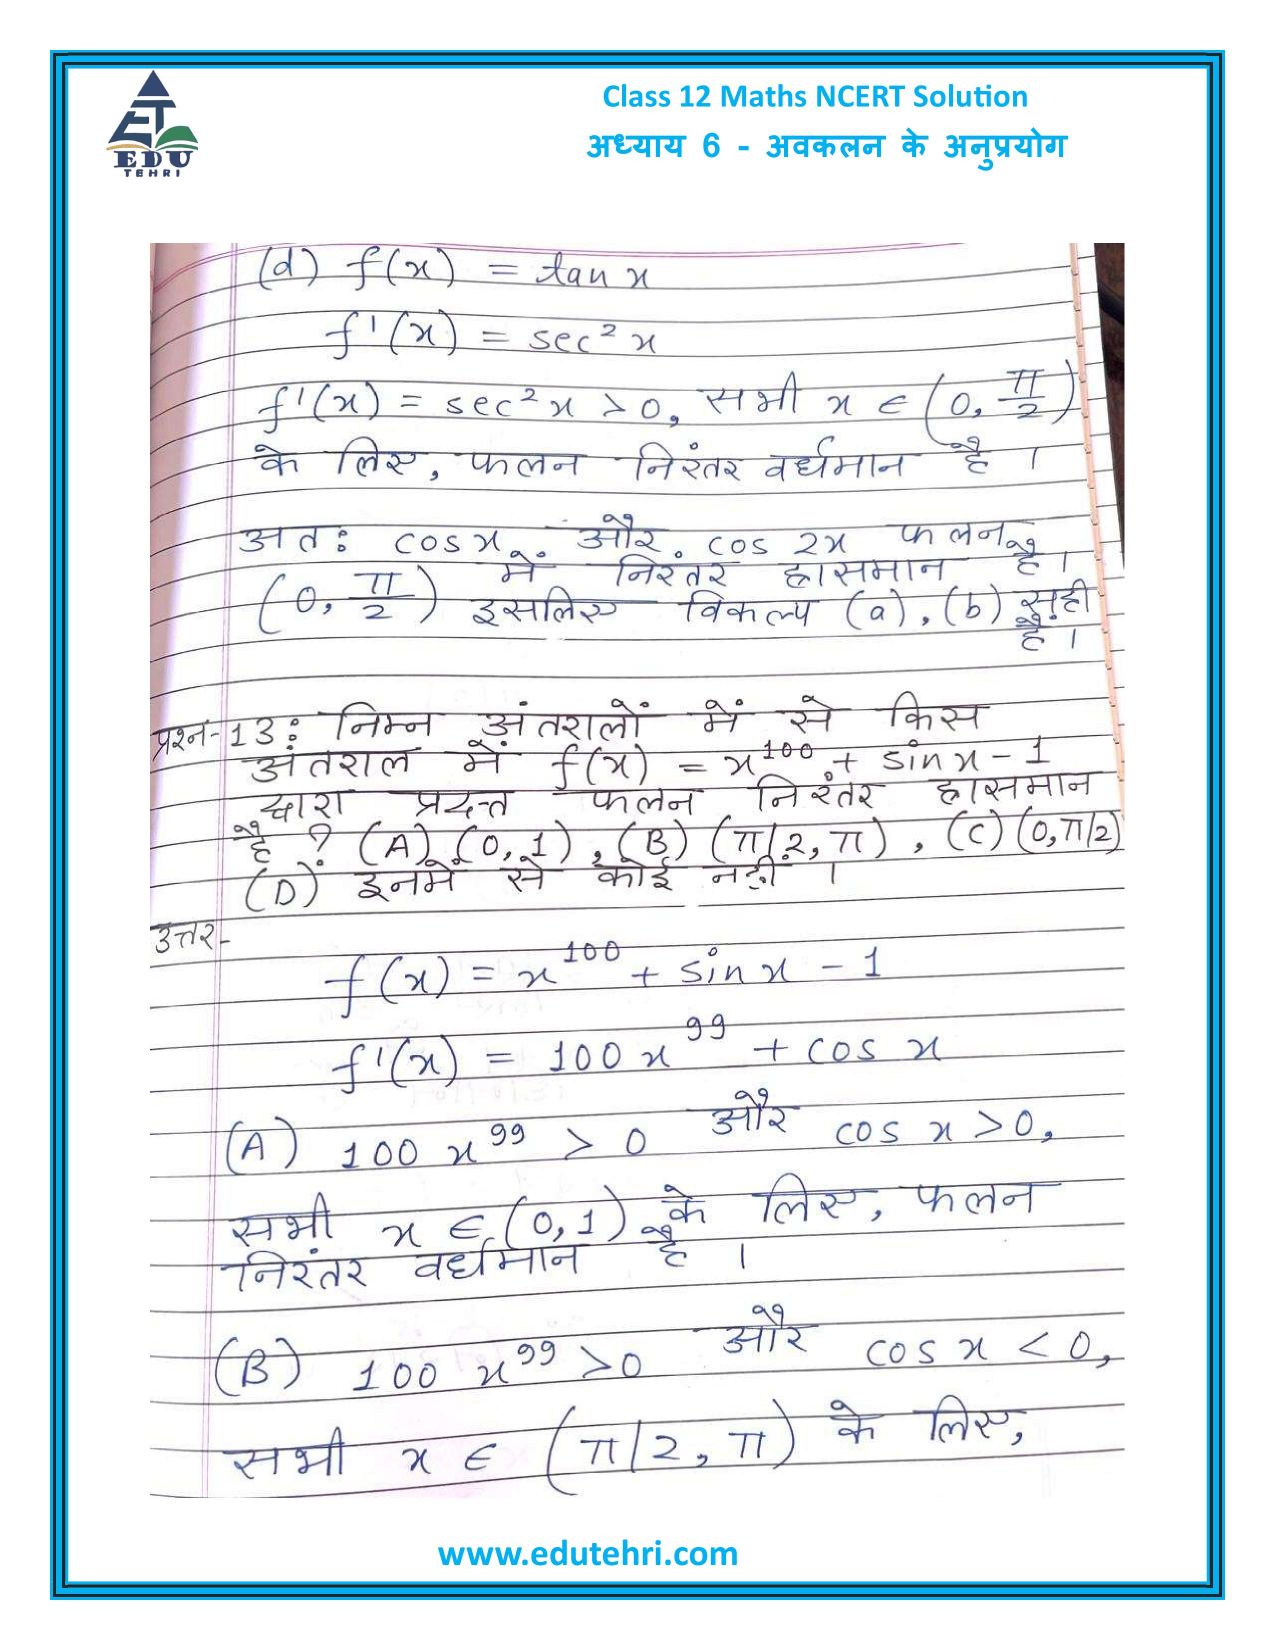 ET
EDU
TEHRI
Class 12 Maths NCERT Solution
अध्याय 6 - अवकलन के अनुप्रयोग
(d) f(x) = tan x
f'(x) = sec² x
f'(x) = sec² x > 0, सभी x ∈ (0, π/2)
के लिए, फलन निरंतर वर्धमान है ।
अतः cos x और cos 2x फलन
(0, π/2) में निरंतर ह्रासमान है ।
इसलिए विकल्प (a), (b) सही
है ।
प्रश्न-13: निम्न अंतरालों में से किस
अंतराल में f(x) = x¹⁰⁰ + sin x - 1
द्वारा प्रदत्त फलन निरंतर ह्रासमान
है ? (A) (0, 1), (B) (π/2, π), (C) (0, π/2)
(D) इनमें से कोई नहीं ।
उत्तर-
f(x) = x¹⁰⁰ + sin x - 1
f'(x) = 100 x⁹⁹ + cos x
(A) 100 x⁹⁹ > 0 और cos x > 0,
सभी x ∈ (0, 1) के लिए, फलन
निरंतर वर्धमान है ।
(B) 100 x⁹⁹ > 0 और cos x < 0,
सभी x ∈ (π/2, π) के लिए,
www.edutehri.com